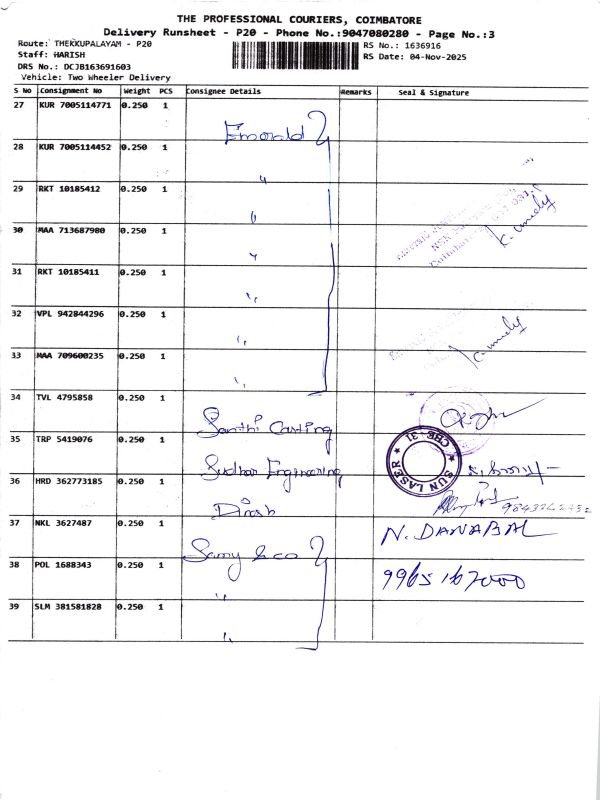 THE PROFESSIONAL COURIERS, COIMBATORE
Delivery Runsheet - P20 - Phone No.:9047080280 - Page No.:3
Route: THEKKUPALAYAM - P20
Staff: HARISH
DRS No.: DCJB163691603
Vehicle: Two Wheeler Delivery
RS No.: 1636916
RS Date: 04-Nov-2025
S No Consignment No Weight PCS Consignee Details Remarks Seal & Signature
27 KUR 7005114771 0.250 1 Emerald
28 KUR 7005114452 0.250 1 "
29 RKT 10185412 0.250 1 "
30 MAA 713687980 0.250 1 "
31 RKT 10185411 0.250 1 "
32 VPL 942844296 0.250 1 "
33 MAA 709600235 0.250 1 "
34 TVL 4795858 0.250 1 Santhi Casting
35 TRP 5419076 0.250 1 Sudhar Engineering
SUN LASER ★ CBE-31 ★
36 HRD 362773185 0.250 1 Dinesh
37 NKL 3627487 0.250 1 Samy & co N. DANABAL
38 POL 1688343 0.250 1 "
39 SLM 381581828 0.250 1 "